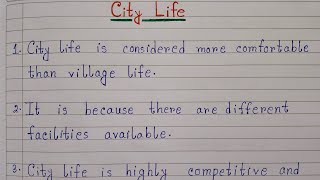 City Life
1. City life is considered more comfortable
than village life.
2. It is because there are different
facilities available.
3. City life is highly competitive and